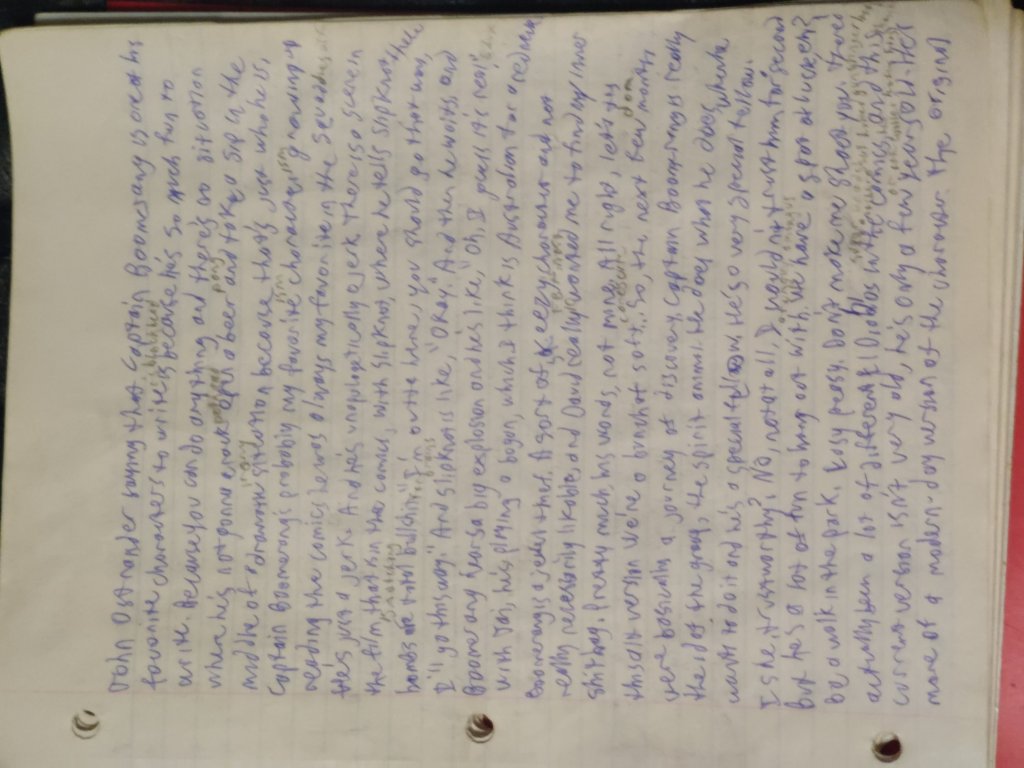 John Ostrander saying that Captain Boomerang is one of his
favourite characters to write is because he's so much fun to
write. Because you can do anything and there's no situation
where he's not gonna crack open a beer and take a sip in the
middle of a dramatic situation because that's just who he is,
Captain Boomerang's probably my favorite character growing up
reading the comics, he was always my favorite in the Squad
He's just a jerk. And he's unapologetically a jerk. There is a scene in
the film, that is in the comics, with Slipknot, where he tells Slipknot, "these
bombs are total bullshit. I'm outta here, you should go that way,
I'll go this way." And Slipknot is like, "Okay." And then he works, and
Boomerang hears a big explosion and he's like, "Oh, I guess it's real."
with Jai, he's playing a bogan, which I think is Australian for a redneck
Boomerang is a jewel thief. A sort of sleezy character and not
really necessarily likable, and David really wanted me to find my inner
shitbag. Pretty much his words, not mine. All right, let's try
this out version we're a bunch of sort... So, the next few months
were basically a journey of discovery. Captain Boomerang is really
the id of the group, the spirit animal. He does what he does when he
wants to do it and he's a specialty. He's a very special fellow.
Is he trustworthy? No, not at all, I wouldn't trust him for a second
but he's a lot of fun to hang out with. We have a spot of bucket?
be a walk in the park. Easy peasy. Don't make me shoot you. There's
actually been a lot of different Diablos in the comics, and this
current version isn't very old, he's only a few years old. He's
more of a modern-day version of the character. The original